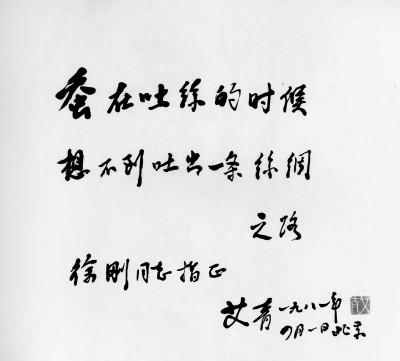 蚕在吐絲的时候
想不到吐出一条絲綢
之路
徐刚同志指正
艾青 一九八一年
月一日北京